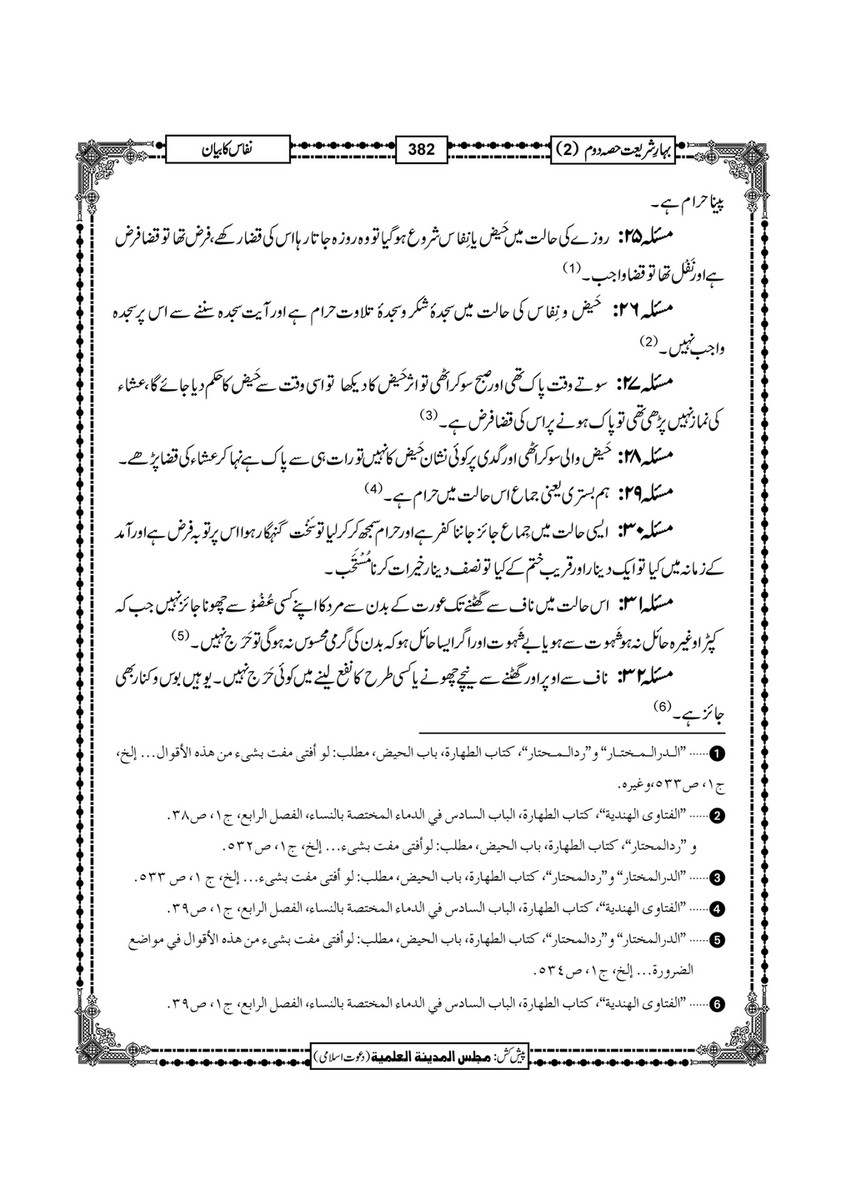 بہارِ شریعت حصہ دوم (2)
382
نفاس کا بیان
پینا حرام ہے۔
مسئلہ ۲۵: روزے کی حالت میں حَیض یا نِفاس شروع ہوگیا تو وہ روزہ جاتا رہا اس کی قضا رکھے، فرض تھا تو قضا فرض
ہے اور نَفْل تھا تو قضا واجب۔ (1)
مسئلہ ۲۶: حَیض و نِفاس کی حالت میں سجدۂ شکر و سجدۂ تلاوت حرام ہے اور آیت سجدہ سننے سے اس پر سجدہ
واجب نہیں۔ (2)
مسئلہ ۲۷: سوتے وقت پاک تھی اور صبح سو کر اٹھی تو اثر حَیض کا دیکھا تو اسی وقت سے حَیض کا حکم دیا جائے گا، عشاء
کی نماز نہیں پڑھی تھی تو پاک ہونے پر اس کی قضا فرض ہے۔ (3)
مسئلہ ۲۸: حَیض والی سو کر اٹھی اور گدی پر کوئی نشان حَیض کا نہیں تو رات ہی سے پاک ہے نہا کر عشاء کی قضا پڑھے۔
مسئلہ ۲۹: ہم بستری یعنی جماع اس حالت میں حرام ہے۔ (4)
مسئلہ ۳۰: ایسی حالت میں جِماع جائز جاننا کفر ہے اور حرام سمجھ کر کر لیا تو سَخْت گنہگار ہوا اس پر توبہ فرض ہے اور آمد
کے زمانہ میں کیا تو ایک دینار اور قریب ختم کے کیا تو نصف دینار خیرات کرنا مُسْتَحَب۔
مسئلہ ۳۱: اس حالت میں ناف سے گھٹنے تک عورت کے بدن سے مرد کا اپنے کسی عُضْوْ سے چھونا جائز نہیں جب کہ
کپڑا وغیرہ حائل نہ ہو شَہوت سے ہو یا بے شَہوت اور اگر ایسا حائل ہو کہ بدن کی گرمی محسوس نہ ہوگی تو حَرَج نہیں۔ (5)
مسئلہ ۳۲: ناف سے اوپر اور گھٹنے سے نیچے چھونے یا کسی طرح کا نفع لینے میں کوئی حَرَج نہیں۔ یوہیں بوس و کنار بھی
جائز ہے۔ (6)
1 ...... ”الـدرالـمـختـار“ و”ردالـمـحتار“، كتاب الطهارة، باب الحيض، مطلب: لو أفتى مفت بشىء من هذه الأقوال... إلخ،
ج١، ص٥٣٣، وغيره.
2 ...... ”الفتاوى الهندية“، كتاب الطهارة، الباب السادس في الدماء المختصة بالنساء، الفصل الرابع، ج١، ص٣٨.
و ”ردالمحتار“، كتاب الطهارة، باب الحيض، مطلب: لوأفتى مفت بشىء... إلخ، ج١، ص٥٣٢.
3 ...... ”الدرالمختار“ و”ردالمحتار“، كتاب الطهارة، باب الحيض، مطلب: لو أفتى مفت بشىء... إلخ، ج ١، ص ٥٣٣.
4 ...... ”الفتاوى الهندية“، كتاب الطهارة، الباب السادس في الدماء المختصة بالنساء، الفصل الرابع، ج١، ص٣٩.
5 ...... ”الدرالمختار“ و”ردالمحتار“، كتاب الطهارة، باب الحيض، مطلب: لوأفتى مفت بشىء من هذه الأقوال في مواضع
الضرورة... إلخ، ج١، ص٥٣٤.
6 ...... ”الفتاوى الهندية“، كتاب الطهارة، الباب السادس في الدماء المختصة بالنساء، الفصل الرابع، ج١، ص٣٩.
پیش کش: مجلس المدینة العلمیة (دعوت اسلامی)